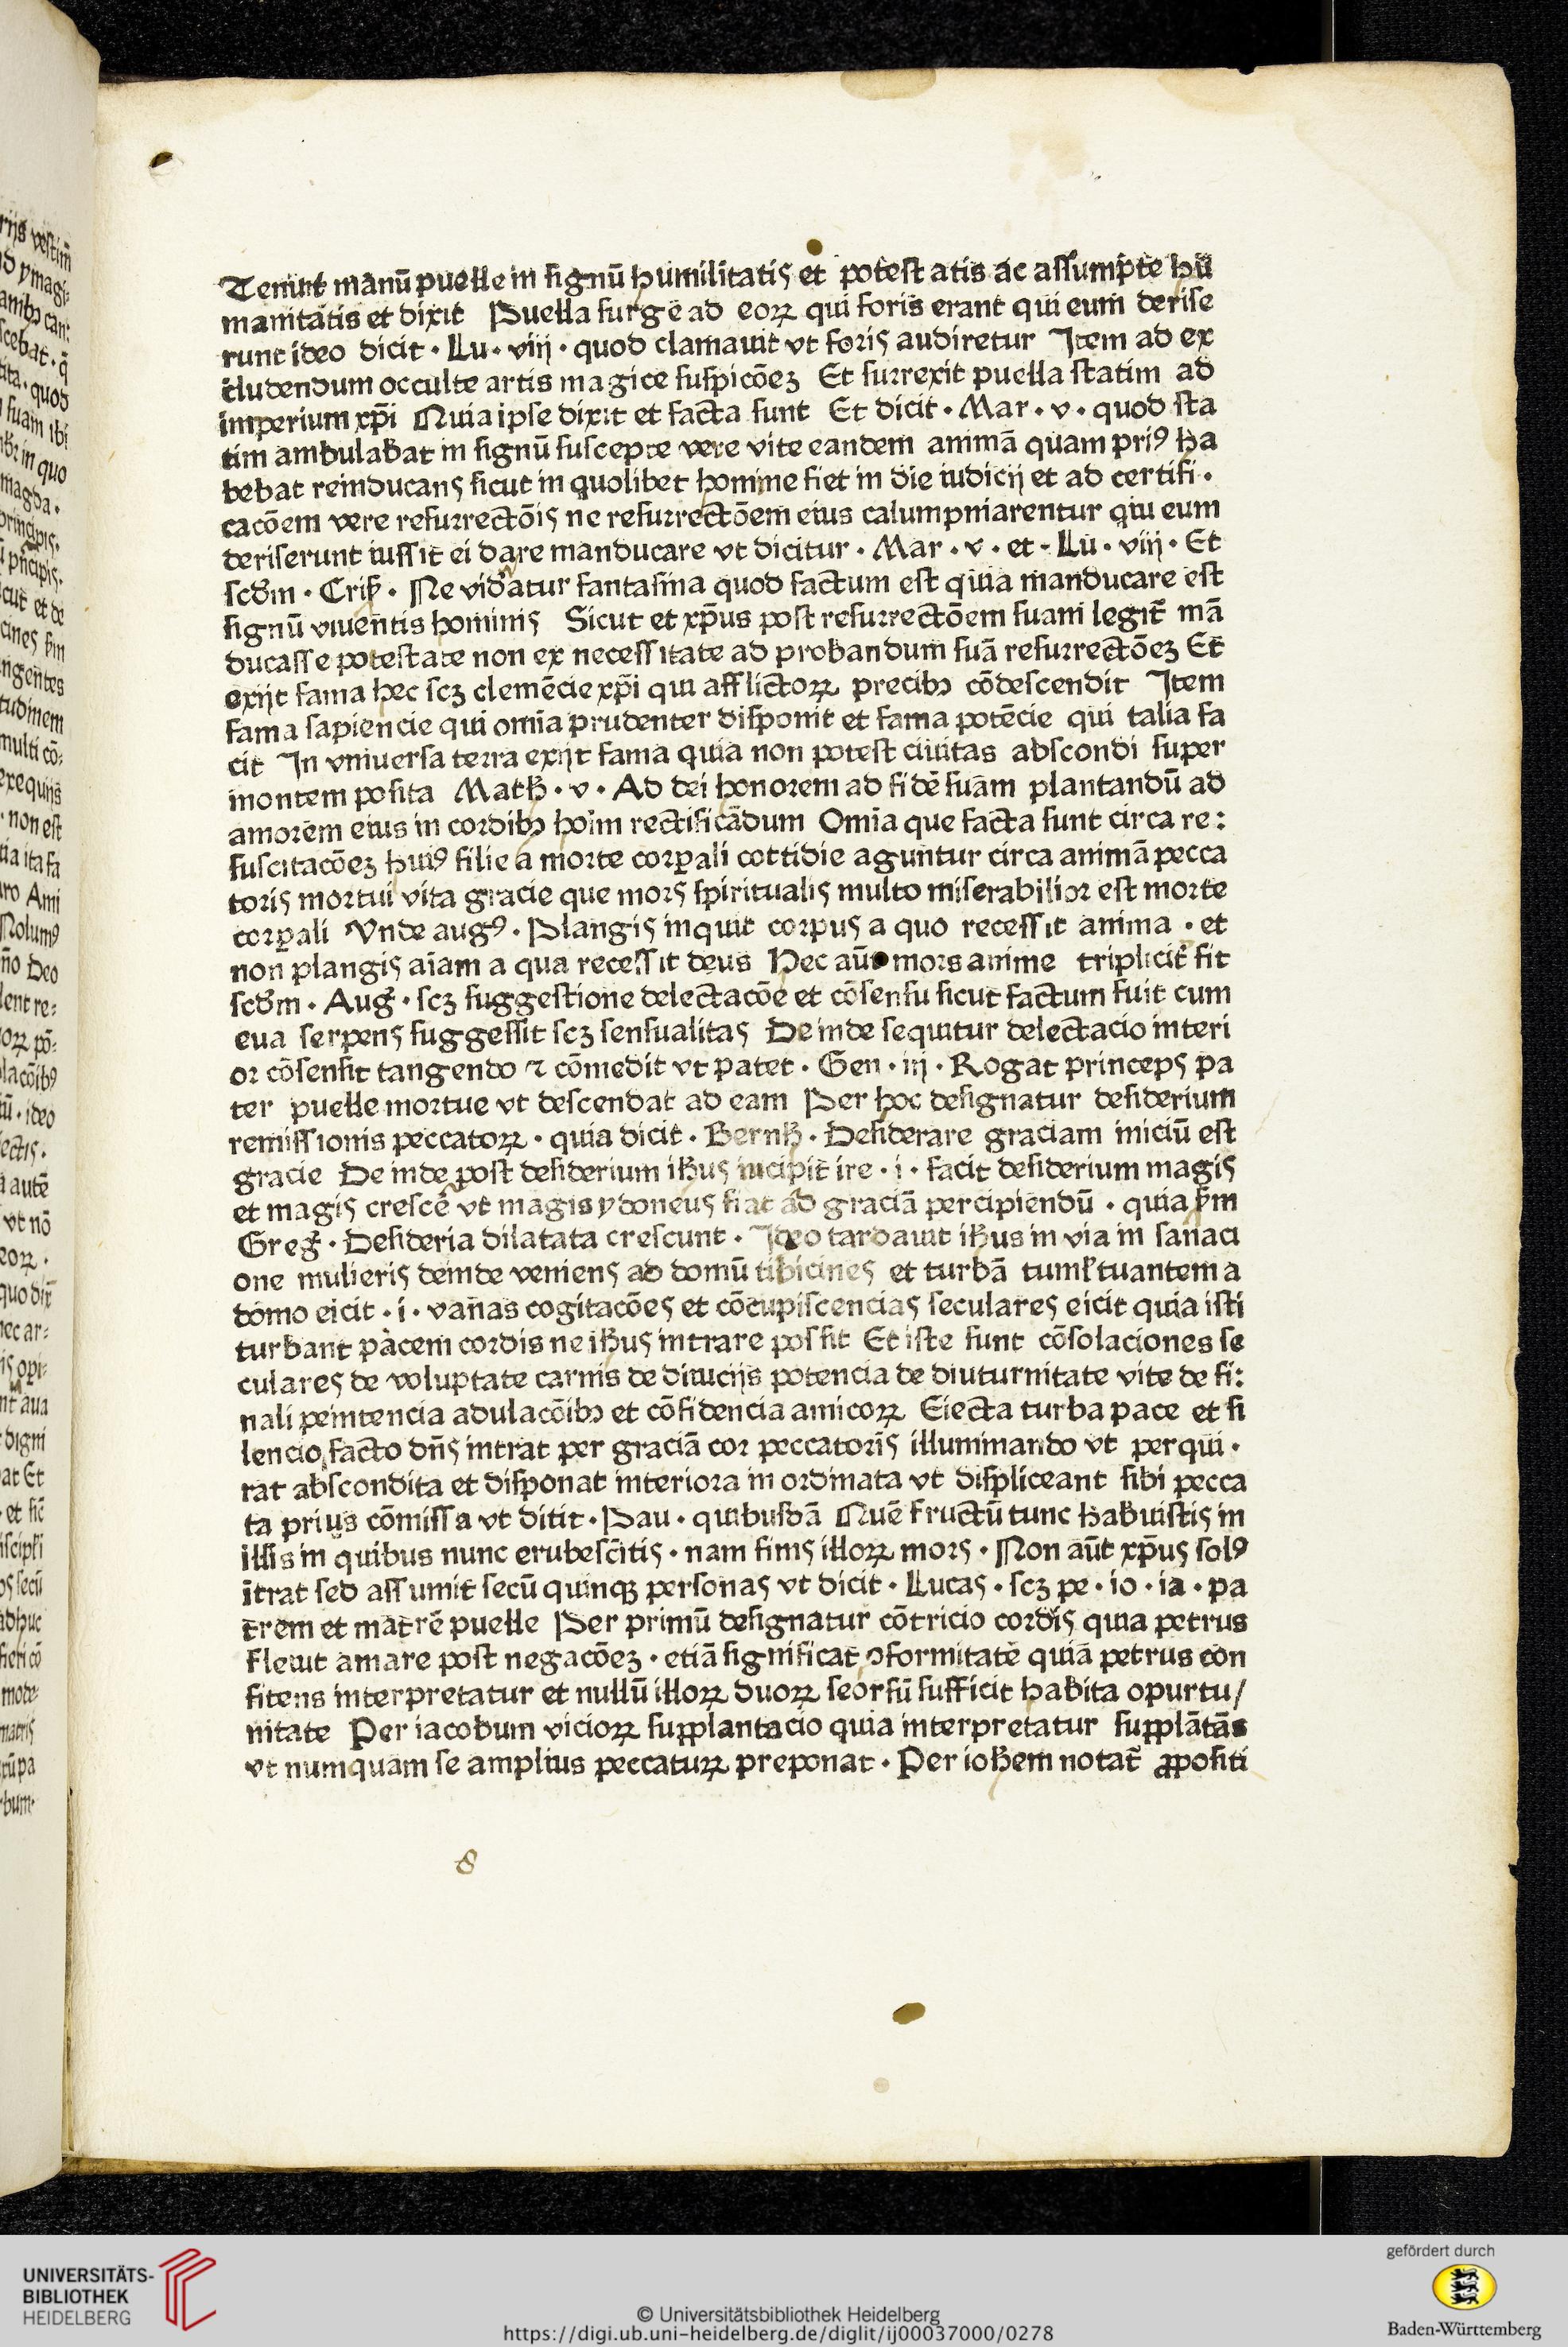 Tenuit manū puelle in signū humilitatis et potest atis ac assumpte hu
manitatis et dixit Puella surge ad eoꝝ qui foris erant qui eum derise
runt ideo dicit · Lu · viij · quod clamauit vt foris audiretur Item ad ex
cludendum occulte artis magice suspicōeꝫ Et surrexit puella statim ad
imperium xp̄i Quia ipse dixit et facta sunt Et dicit · Mar · v · quod sta
tim ambulabat in signū suscepte vere vite eandem animā quam priꝰ ha
bebat reinducans sicut in quolibet homine fiet in die iudicij et ad certifi ·
cacōem vere resurrectōis ne resurrectōem eius calumpniarentur qui eum
deriserunt iussit ei dare manducare vt dicitur · Mar · v · et · Lu · viij · Et
scd̄m · Cris̄ · Ne videatur fantasma quod factum est quia manducare est
signū viuentis hominis Sicut et xp̄us post resurrectōem suam legit̄ mā
ducasse potestate non ex necessitate ad probandum suā resurrectōeꝫ Et
exijt fama hec scꝫ clemēcie xp̄i qui afflictoꝝ precibꝫ cōdescendit Item
fama sapiencie qui omīa prudenter disponit et fama potēcie qui talia fa
cit In vniuersa terra exijt fama quia non potest ciuitas abscondi super
montem posita Math̄ · v · Ad dei honorem ad fidē suam plantandū ad
amorem eius in cordibꝫ hoīm rectificādum Omīa que facta sunt circa re:
suscitacōeꝫ huiꝰ filie a morte corꝑali cottidie aguntur circa animā pecca
toris mortui vita gracie que mors spiritualis multo miserabilior est morte
corꝑali Vnde augꝰ · Plangis inquit corpus a quo recessit anima · et
non plangis aīam a qua recessit deus Hec aūt mors anime triplicit̄ fit
scd̄m · Auḡ · scꝫ suggestione delectacōe et cōsensu sicut factum fuit cum
eua serpens suggessit scꝫ sensualitas Deinde sequitur delectacio interi
or cōsensit tangendo ⁊ cōmedit vt patet · Gen · iij · Rogat princeps pa
ter puelle mortue vt descendat ad eam Per hoc designatur desiderium
remissionis peccatoꝝ · quia dicit · Bernh̄ · Desiderare graciam iniciū est
gracie Deinde post desiderium ih̄us incipit ire · i · facit desiderium magis
et magis crescē vt magis ydoneus fiat ad graciā percipiendū · quia ẜm
Greḡ · Desideria dilatata crescunt · Ideo tardauit ih̄us in via in sanaci
one mulieris deinde veniens ad domū tibicines et turbā tumltuantem a
domo eicit · i · vanas cogitacōes et cōcupiscencias seculares eicit quia isti
turbant pacem cordis ne ih̄us intrare possit Et iste sunt cōsolaciones se
culares de voluptate carnis de diuicijs potencia de diuturnitate vite de fi:
nali penitencia adulacōibꝫ et cōfidencia amicoꝝ Eiecta turba pace et si
lencio facto dn̄s intrat per graciā cor peccatoris illuminando vt perqui ·
rat abscondita et disponat interiora inordinata vt displiceant sibi pecca
ta prius cōmissa vt ditit · Pau · quibusdā Quē fructū tunc habuistis in
illis in quibus nunc erubescitis · nam finis illoꝝ mors · Non aūt xp̄us solꝰ
ītrat sed assumit secū quinqꝫ personas vt dicit · Lucas · scꝫ pe · io · ia · pa
trem et matrē puelle Per primū designatur cōtricio cordis quia petrus
fleuit amare post negacōeꝫ · etiā significat ↄformitatē quia petrus con
fitens interpretatur et nullū illoꝝ duoꝝ seorsū sufficit habita opurtu/
nitate Per iacobum vicioꝝ supplantacio quia interpretatur supplātās
vt numquam se amplius peccatuꝝ preponat · Per ioh̄em notat̄ ꝓpositi
8
UNIVERSITÄTS-
BIBLIOTHEK
HEIDELBERG
© Universitätsbibliothek Heidelberg
https://digi.ub.uni-heidelberg.de/diglit/ij00037000/0278
gefördert durch
Baden-Württemberg